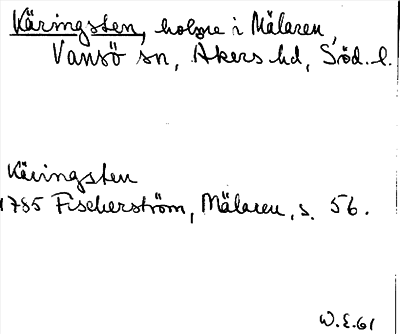 Käringsten, holme i Mälaren,
Vansö sn, Åkers hd, Söd. l.
Käringsten
1785 Fischerström, Mälaren, s. 56.
W.E.61